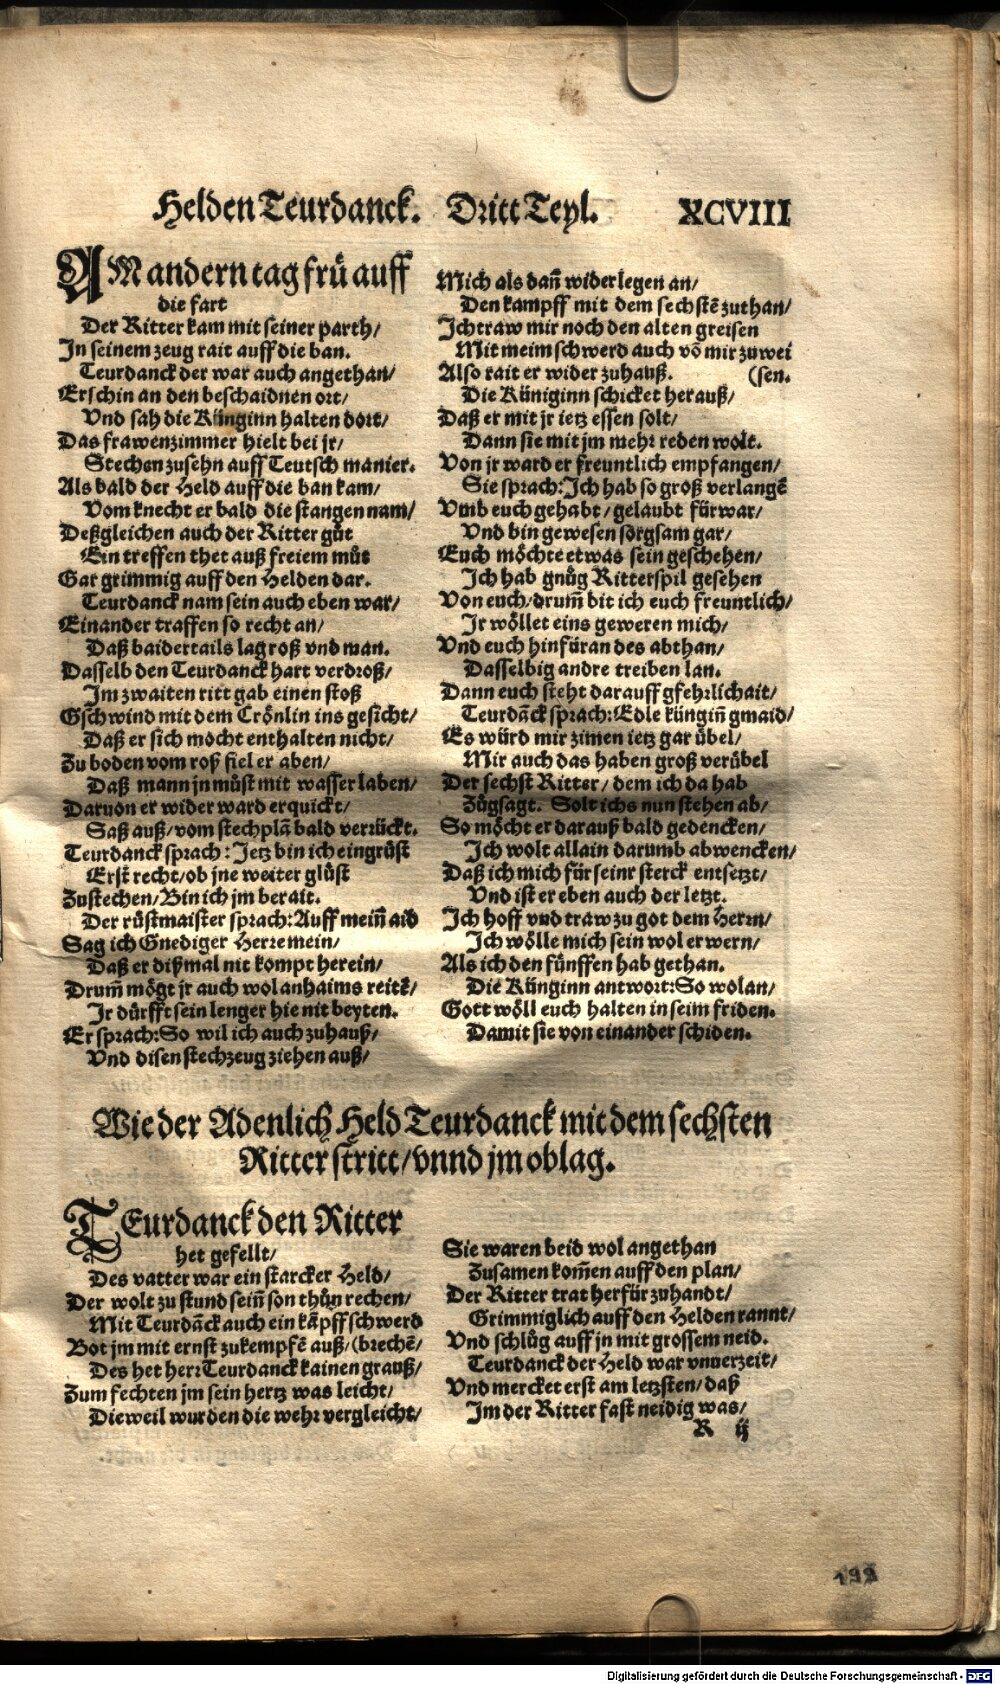 Helden Teurdanck. Dritt Teyl. XCVIII
AM andern tag frü auff
die fart
Der Ritter kam mit seiner parth/
In seinem zeug rait auff die ban.
Teurdanck der war auch angethan/
Erschin an den beschaidnen ort/
Vnd sah die Künginn halten dort/
Das frawenzimmer hielt bei jr/
Stechen zusehn auff Teutsch manier.
Als bald der Held auff die ban kam/
Vom knecht er bald die stangen nam/
Deßgleichen auch der Ritter gůt
Ein treffen thet auß freiem můt
Gar grimmig auff den Helden dar.
Teurdanck nam sein auch eben war/
Einander traffen so recht an/
Daß baidertails lag roß vnd man.
Dasselb den Teurdanck hart verdroß/
Im zwaiten ritt gab einen stoß
Gschwind mit dem Crönlin ins gesicht/
Daß er sich mocht enthalten nicht/
Zu boden vom roß fiel er aben/
Daß mann jn můst mit wasser laben/
Daruon er wider ward erquickt/
Saß auß/vom stechplā bald verrückt.
Teurdanck sprach: Jetz bin ich eingrüst
Erst recht/ob jne weiter glüst
Zustechen/Bin ich jm berait.
Der rüstmaister sprach:Auff mein̄ aid
Sag ich Gnediger Herre mein/
Daß er dißmal nit kompt herein/
Drum̄ mögt jr auch wol anhaims reitē/
Ir dürfft sein lenger hie nit beyten.
Er sprach:So wil ich auch zuhauß/
Vnd disen stechzeug ziehen auß/
Mich als dan̄ wider legen an/
Den kampff mit dem sechstē zuthan/
Ich traw mir noch den alten greisen
Mit meim schwerd auch vō mir zuwei
Also rait er wider zuhauß. (sen.
Die Küniginn schicket herauß/
Daß er mit jr ietz essen solt/
Dann sie mit jm mehr reden wolt.
Von jr ward er freuntlich empfangen/
Sie sprach:Ich hab so groß verlangē
Vmb euch gehabt/gelaubt fürwar/
Vnd bin gewesen sorgsam gar/
Euch möchte etwas sein geschehen/
Ich hab gnůg Ritterspil gesehen
Von euch/drum̄ bit ich euch freuntlich/
Ir wöllet eins geweren mich/
Vnd euch hinfüran des abthan/
Dasselbig andre treiben lan.
Dann euch steht darauff gfehrlichait/
Teurdāck sprach:Edle küngin̄ gmaid/
Es würd mir zimen ietz gar übel/
Mir auch das haben groß verübel
Der sechst Ritter/dem ich da hab
Zůgsagt. Solt ichs nun stehen ab/
So möcht er darauß bald gedencken/
Ich wolt allain darumb abwencken/
Daß ich mich für seinr sterck entsetzt/
Vnd ist er eben auch der letzt.
Ich hoff vnd traw zu got dem Herrn/
Ich wölle mich sein wol erwern/
Als ich den fünffen hab gethan.
Die Künginn antwort:So wolan/
Gott wöll euch halten in seim friden.
Damit sie von einander schiden.
Wie der Adenlich Held Teurdanck mit dem sechsten
Ritter stritt/vnnd jm oblag.
TEurdanck den Ritter
het gefellt/
Des vatter war ein starcker Held/
Der wolt zu stund sein̄ son thůn rechen/
Mit Teurdāck auch ein kāpff schwerd
Bot jm mit ernst zukempfē auß/(brechē/
Des het herr Teurdanck kainen grauß/
Zum fechten jm sein hertz was leicht/
Dieweil wurden die wehr vergleicht/
Sie waren beid wol angethan
Zusamen kom̄en auff den plan/
Der Ritter trat herfür zuhandt/
Grimmiglich auff den Helden rannt/
Vnd schlůg auff jn mit grossem neid.
Teurdanck der Held war vnuerzeit/
Vnd mercket erst am letzsten/daß
Im der Ritter fast neidig was/
R ij
199
Digitalisierung gefördert durch die Deutsche Forschungsgemeinschaft - DFG